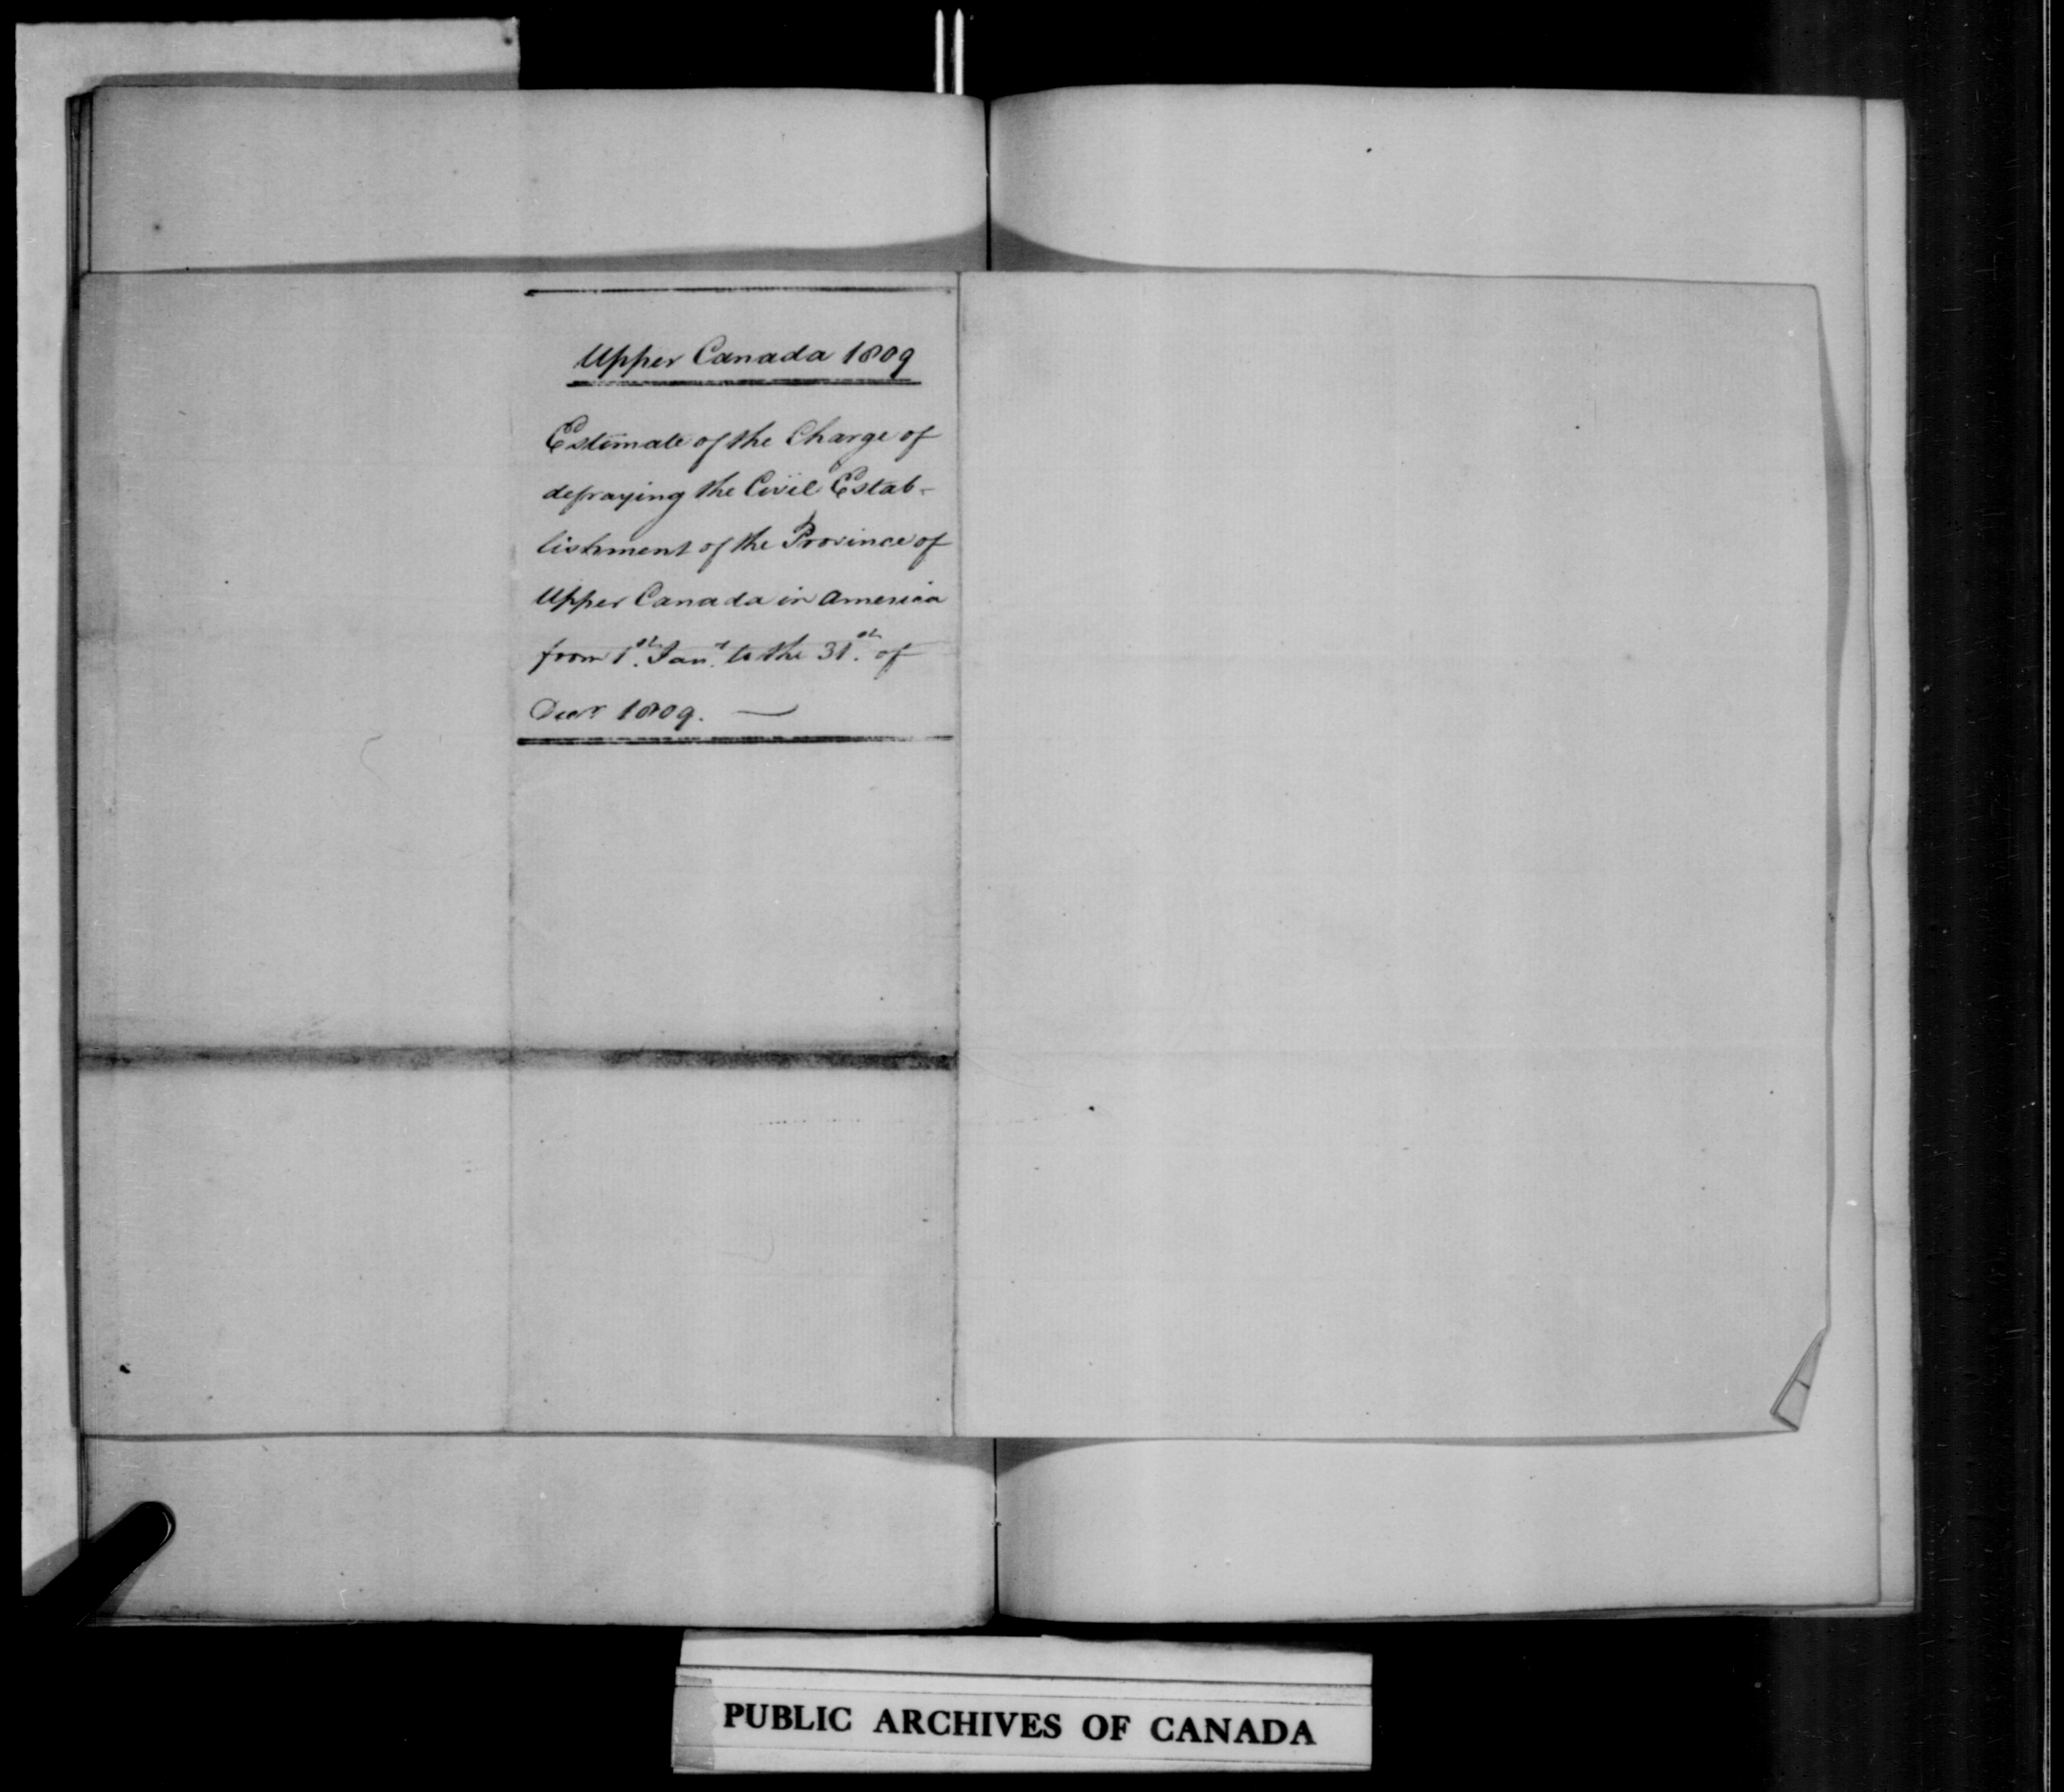 Upper Canada 1809
Estimate of the Charge of
defraying the Civil Estab-
lishment of the Province of
Upper Canada in America
from 1st. Jany. to the 31st. of
Decr 1809. —
PUBLIC ARCHIVES OF CANADA